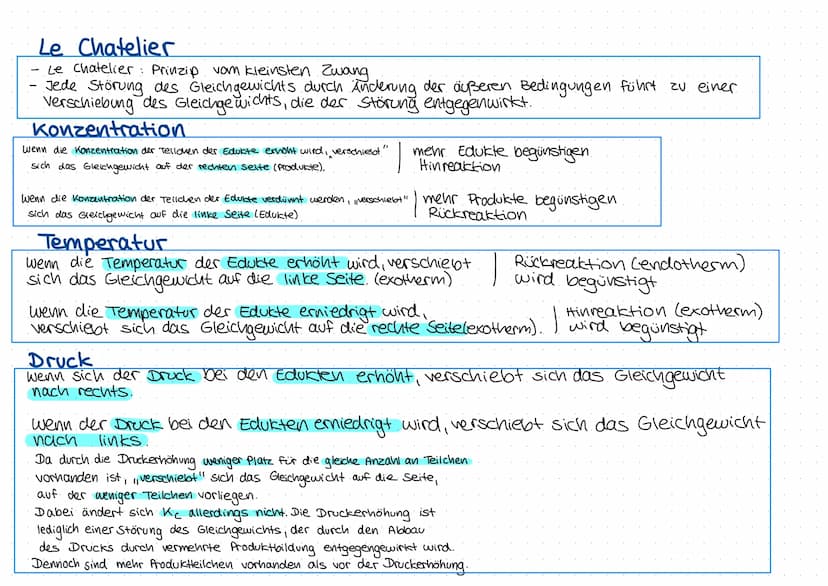 Le Chatelier
- Le Chatelier : Prinzip vom kleinsten Zwang
- Jede Störung des Gleichgewichts durch Änderung der äußeren Bedingungen führt zu einer
Verschiebung des Gleichgewichts, die der Störung entgegenwirkt.
Konzentration
Wenn die Konzentration der Teilchen der Edukte erhöht wird, „verschiebt"
sich das Gleichgewicht auf der rechten Seite (Produkte).
mehr Edukte begünstigen
Hinreaktion
Wenn die Konzentration der Teilchen der Edukte verdünnt werden, „verschiebt"
sich das Gleichgewicht auf die linke Seite (Edukte)
mehr Produkte begünstigen
Rückreaktion
Temperatur
Wenn die Temperatur der Edukte erhöht wird, verschiebt
sich das Gleichgewicht auf die linke Seite. (exotherm)
Rückreaktion (endotherm)
wird begünstigt
Wenn die Temperatur der Edukte erniedrigt wird,
verschiebt sich das Gleichgewicht auf die rechte Seite (exotherm).
Hinreaktion (exotherm)
wird begünstigt
Druck
Wenn sich der Druck bei den Edukten erhöht, verschiebt sich das Gleichgewicht
nach rechts.
Wenn der Druck bei den Edukten erniedrigt wird, verschiebt sich das Gleichgewicht
nach links.
Da durch die Druckerhöhung weniger Platz für die gleiche Anzahl an Teilchen
vorhanden ist, „verschiebt" sich das Gleichgewicht auf die Seite,
auf der weniger Teilchen vorliegen.
Dabei ändert sich Kc allerdings nicht. Die Druckerhöhung ist
lediglich einer Störung des Gleichgewichts, der durch den Abbau
des Drucks durch vermehrte Produktbildung entgegengewirkt wird.
Dennoch sind mehr Produktteilchen vorhanden als vor der Druckerhöhung.